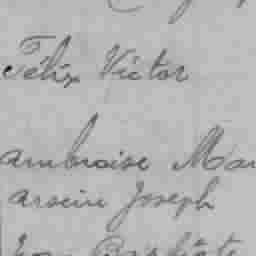 Félix Victor
ambroise Mar
arsène Joseph
Jean Baptiste